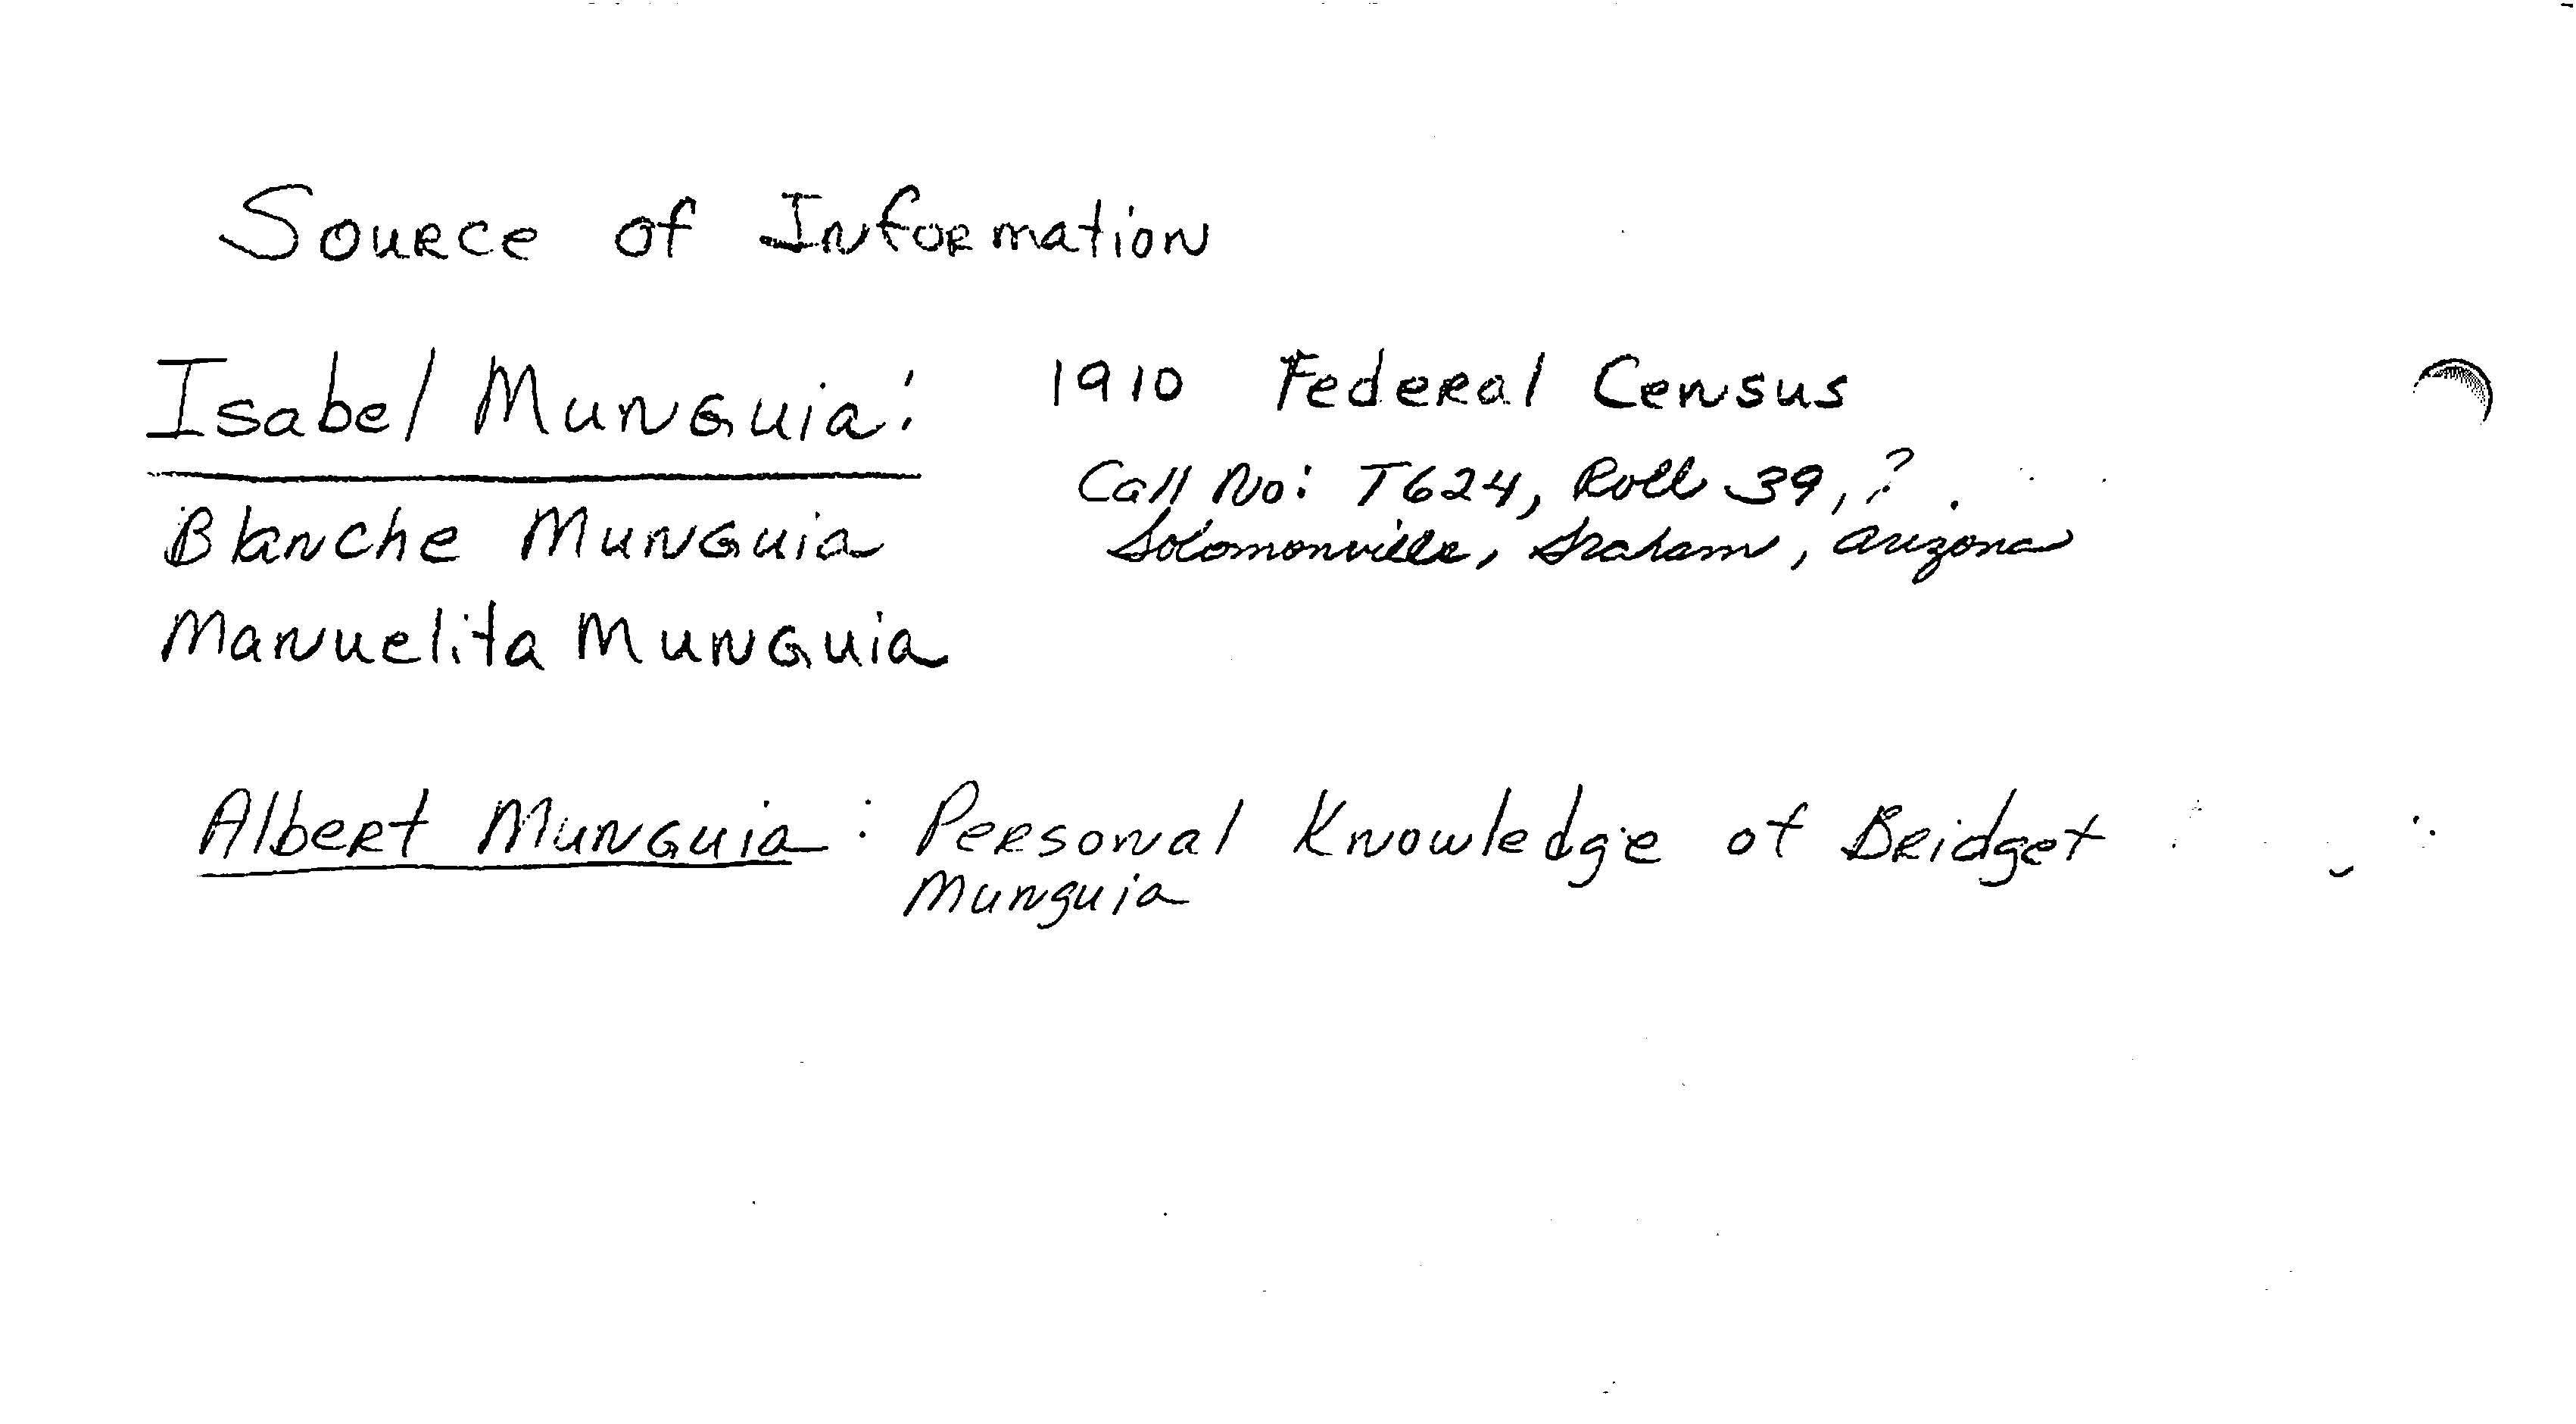 Source of Information
Isabel Munguia: 1910 Federal Census
Call No: T624, Roll 39, ?.
Blanche Munguia Solomonville, Graham, Arizona
Manuelita Munguia
Albert Munguia: Personal Knowledge of Bridget
Munguia